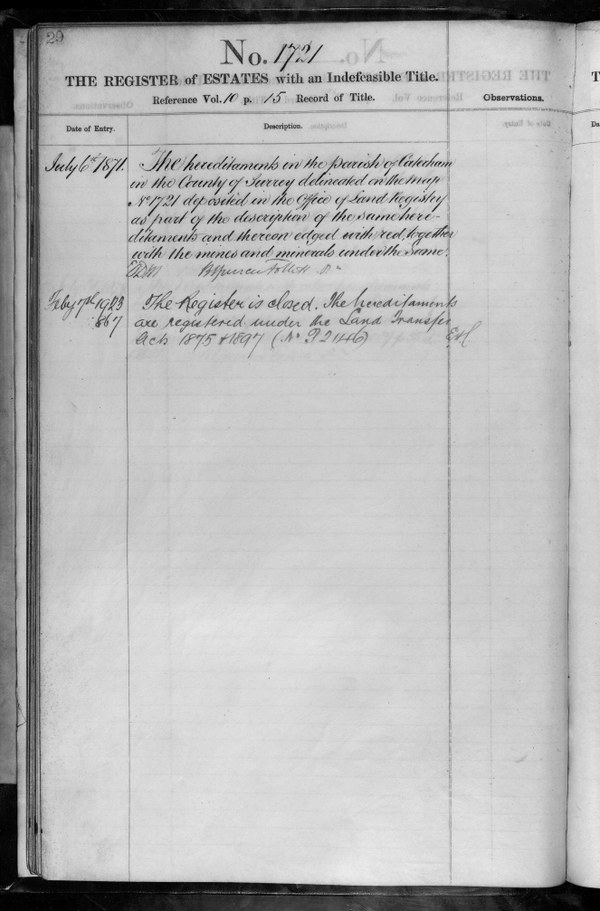 29
No. 1721
THE REGISTER of ESTATES with an Indefeasible Title.
Reference Vol. 10 p. 15 Record of Title.
Observations.
Date of Entry.
Description.
July 6th 1871.
The hereditaments in the parish of Caterham
in the County of Surrey delineated on the map
No 1721 deposited in the Office of Land Registry
as part of the description of the same here-
ditaments and thereon edged with red, together
with the mines and minerals under the same.
Feby 7th 1923
867
The Register is closed. The hereditaments
are registered under the Land Transfer
Acts 1875 & 1897 (No P 2146)